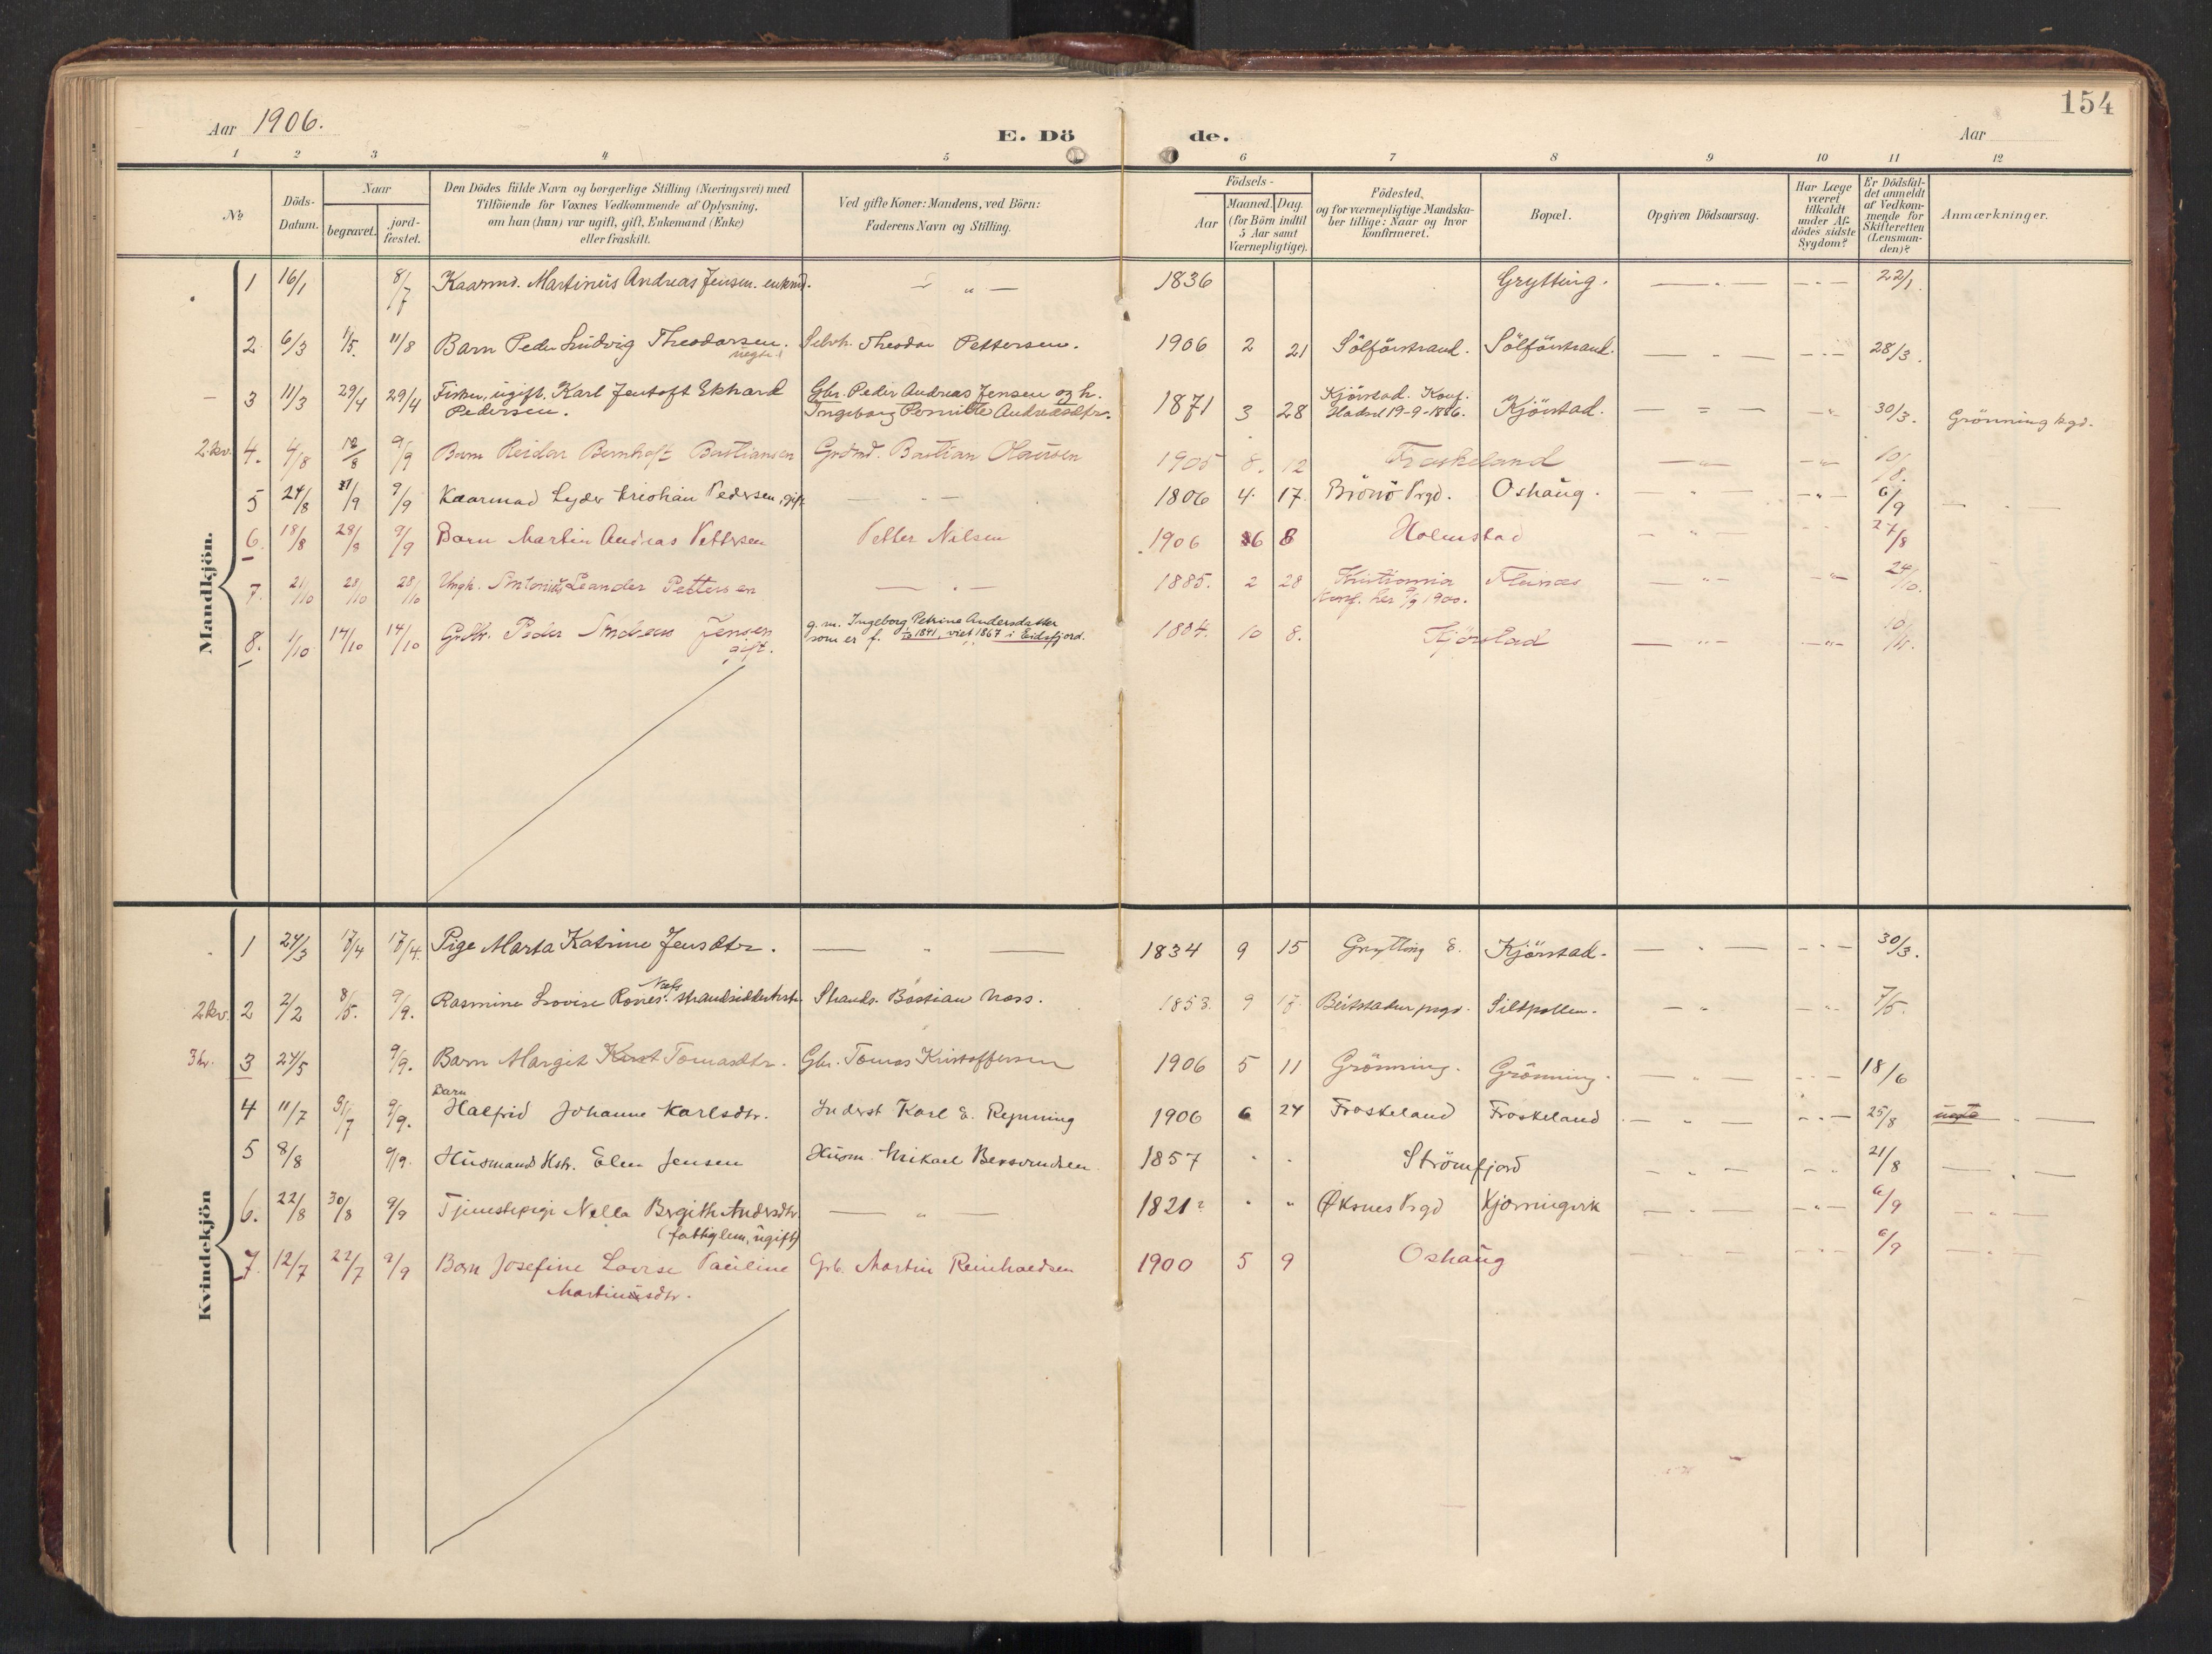 154
Aar 1906.
E. Döde.
Aar
1 2 3 4 5 6 7 8 9 10 11 12
№
Döds-Datum.
Naar
begravet.
jord-fæstet.
Den Dödes fulde Navn og borgerlige Stilling (Næringsvei) med
Tilföiende for Voxnes Vedkommende af Oplysning,
om han (hun) var ugift, gift, Enkemand (Enke)
eller fraskilt.
Ved gifte Koner: Mandens, ved Börn:
Faderens Navn og Stilling.
Födsels-
Aar
Maaned. Dag.
(for Börn indtil
5 Aar samt
Værnepligtige).
Födested,
og for værnepligtige Mandska-
ber tillige: Naar og hvor
konfirmeret.
Bopæl.
Opgiven Dödsaarsag.
Har Læge
været
tilkaldt
under Af-
dödes sidste
Sygdom?
Er Dödsfal-
det anmeldt
af Vedkom-
mende for
Skifteretten
(Lensman-
den)?
Anmærkninger.
Mandkjön.
1 16/1 8/7 Kaarmd. Martinus Andreas Jensen. enkmd. — „ — 1836 Grytting. — „ — — „ — 22/1
2 6/3 1/5. 11/8 Barn Peder Ludvig Theodorsen. Selvh. Theodor Pettersen. 1906 2 21 Sölförstrand. Sölförstrand. — „ — — „ — 28/3.
uegte.
3 11/3 29/4 29/4 Fisker, ugift. Karl Jentoft Ekhard Gbr. Peder Andreas Jensen og h. 1871 3 28 Kjörstad. Konf. Kjörstad. — „ — — „ — 30/3. Grönning kgd.
Pedersen. Ingeborg Pernille Andreasdtr. Hadsel 19-9-1886.
2.kv. 4. 4/8 12/8 9/9 Barn Reidar Bernhoft Bastiansen Grdmd. Bastian Olausen 1905 8. 12 Froskeland — „ — — „ — 10/8.
5 24/8 1/9 9/9 Kaarmad Lyder Kriohan Pedersen, gift — „ — 1806 4. 17. Brönö Prgd. Oshaug. — „ — — „ — 6/9 — „ —
6. 18/8 28/8 9/9 Barn Martin Andreas Pettersen Petter Nilsen 1906 6 8 Holmstad — „ — 27/8
7. 21/10 28/10 28/10 Ungk. Antonius Leander Pettersen — „ — 1885. 2 28 Kristiania Fleines — „ — — „ — 24/10.
Konf. her 9/9 1900.
8. 1/10 14/10 14/10 Grdbr. Peder Andreas Jensen g. m. Ingeborg Petrine Andersdatter 1804. 10 8. Kjörstad — „ — — „ — 10/11.
gift. som er f. 1841, viet 1867 i Eidsfjord.
Kvindekjön
1 24/3 17/4 17/4. Pige Marta Katrine Jensdtr. — „ — 1834 9 15 Grytting E. Kjörstad. — „ — — „ — 30/3.
2kv. 2 2/2 8/5. 9/9. Rasmine Lovise Næss. strandsidderhstr. Strands. Bastian Næss. 1853. 9 17. Beitstaden prgd. Sildpollen. — „ — „ — 7/5.
3kv. 3 24/5 9/9. Barn Margit Tomasdtr. Gbr. Tomas Kristoffersen 1906 5 11 Grönning. Grönning. — „ — — „ — 18/6
4 11/7 31/7 9/9. Barn Halfrid Johanne Karlsdtr. Inderst Karl E. Rynning 1906 6 24 Froskeland Froskeland — „ — — „ — 25/8 uegte „ —
5 8/8 9/9. Husmands Hstr. Elen Jensen Husm. Mikael Bersvendsen 1857 „ „ Strömfjord — „ — „ — 21/8 — „ —
6. 22/8 30/8 9/9 Tjenestepige Nella Bergithe Andersdtr. — „ — 1821? „ „ Øksnes Prgd Kjörringvik — „ — — „ — 6/9 — „ —
(fattiglem, ugift)
7. 12/7 22/7 9/9 Barn Josefine Lovise Pauline Grb. Martin Reinholdsen 1900 5 9 Oshaug — „ — — „ — 6/9 — „ —
Martinusdtr.